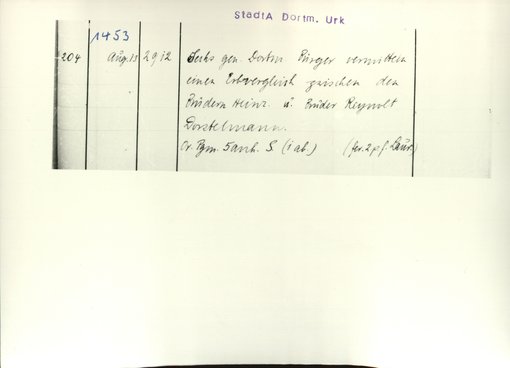 StadtA Dortm. Urk
1453
204 Aug. 13 2912 Sechs gen. Dortm Bürger vermitteln
einen Erbvergleich zwischen den
Brüdern Heinr. u. Bruder Reynolt
Dorstelmann.
Or. Pgm. 5 anh. S. (1 ab.) (fer. 2 p. f. Laur.)